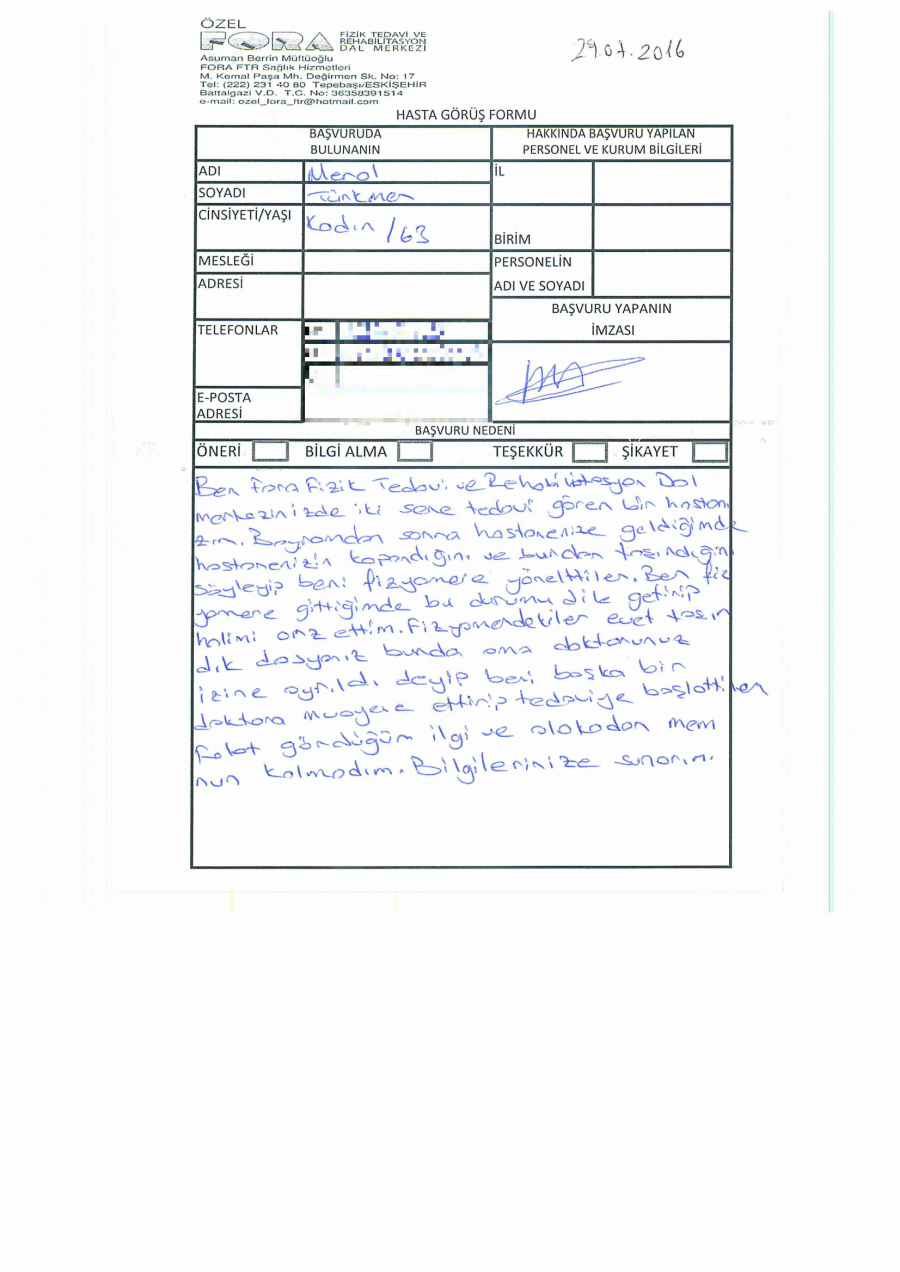 ÖZEL
FORA FİZİK TEDAVİ VE
REHABİLİTASYON
DAL MERKEZİ
Asuman Berrin Müftüoğlu
FORA FTR Sağlık Hizmetleri
M. Kemal Paşa Mh. Değirmen Sk. No: 17
Tel: (222) 231 40 80 Tepebaşı/ESKİŞEHİR
Battalgazi V.D. T.C. No: 36358391514
e-mail: ozel_fora_ftr@hotmail.com
29.07.2016
HASTA GÖRÜŞ FORMU
BAŞVURUDA
BULUNANIN
HAKKINDA BAŞVURU YAPILAN
PERSONEL VE KURUM BİLGİLERİ
ADI Meral
SOYADI Türkmen
CİNSİYETİ/YAŞI Kadın /63
MESLEĞİ
ADRESİ
TELEFONLAR
E-POSTA
ADRESİ
İL
BİRİM
PERSONELİN
ADI VE SOYADI
BAŞVURU YAPANIN
İMZASI
BAŞVURU NEDENİ
ÖNERİ BİLGİ ALMA TEŞEKKÜR ŞİKAYET
Ben Fora Fizik Tedavi ve Rehabilitasyon Dal
merkezinizde iki sene tedavi gören bir hastanı
zım. Bayramdan sonra hastanenize geldiğimde
hastanenizin kapandığını ve burdan taşındığını
söyleyip beni fizyomere yönelttiler. Ben fiz
yomere gittiğimde bu durumu dile getirip
halimi arz ettim. Fizyomerdekiler evet taşın
dık dosyanız burda ama doktorunuz
izine ayrıldı deyip beni başka bir
doktora muayene ettirip tedaviye başlattılar
fakat gördüğüm ilgi ve alakadan mem
nun kalmadım. Bilgilerinize sunarım.